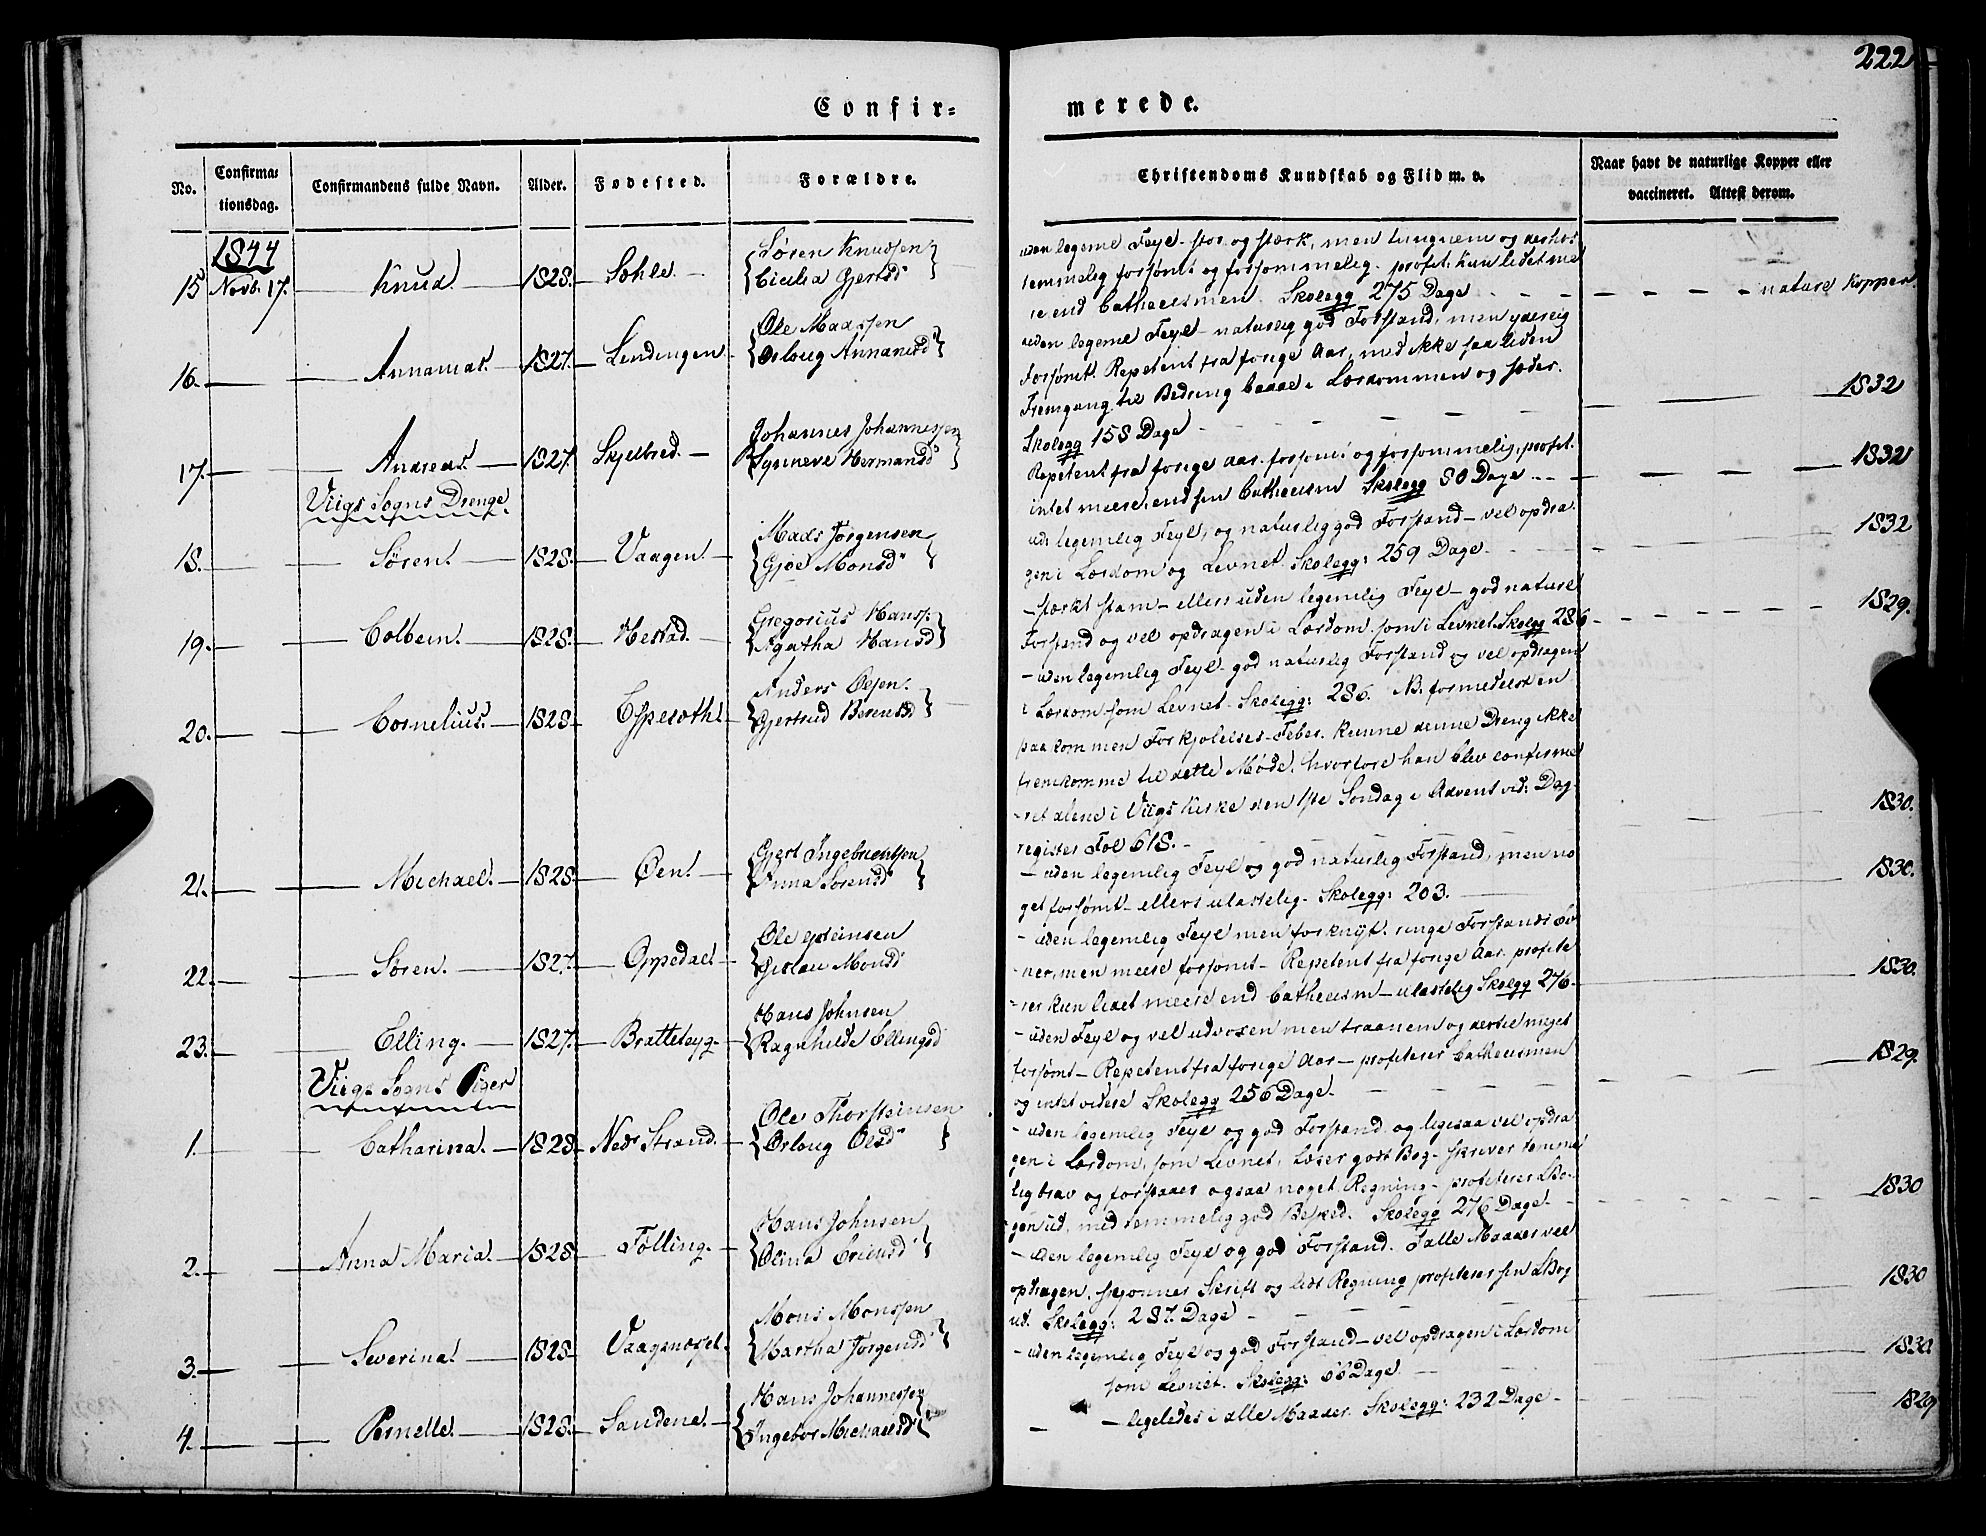 222
Confir-
merede.
No.
Confirma-
tionsdag.
Confirmandens fulde Navn.
Alder.
Fødested.
Forældre.
Christendoms Kundskab og Flid m. v.
Naar havt de naturlige Kopper eller
vaccineret. Attest derom.
1844
15 Novb. 17. Knud. 1828. Søhle.
Søren Knudsen
Cicilia Gjertsd
uden legeme Feyl- stor og stærk, men tungnem og derhos
temmelig forsømt og forsommelig. profit. kun lidet me
re end Cathecismen. Skolegg 275 Dage
nature Kopper
16. Annanias. 1827. Lendingen
Ole Madssen
Orloug Annaniesd
uden legeme Feyl- naturlig god Forstand, men yderlig
forsømt. Repetent fra forige Aar, med ikke saa liden
Fremgang til Bedring baade i Lærdommen og Sæder.
Skolegg 158 Dage
1832
17. Andreas. 1827. Skjelbred.
Johannes Johannessen
Synneve Hermansd
Repetent fra forige aar. forsømt og forsommelig, profit.
intet meere, end sin Cathecism Skolegg 80 Dage
1832
Viigs Sogns Drenge.
18. Søren. 1828. Vaagen.
Mads Jørgensen
Gjøe Monsd
ud: legemlig Feyl, og naturlig god Forstand- vel opdra-
gen i Lærdom og Levnet. Skolegg: 259 Dage.
1832
19. Colbein. 1828. Hestad.
Gregorius Hanss:
Agatha Hansd
-stærkt stam- ellers uden legemlig Feyl- god naturl
Forstand og vel opdragen i Lærdom som i Levnet. Skolegg 286
1829.
20. Cornelius. 1828. Espeseth
Anders Olsen.
Gjertrud Berentsd
- uden legemlig Feyl- god naturlig Forstand og vel opdragen
i Lærdom som Levnet. Skolegg: 286. NB. formedelst en
paakommen Forkjølelses-Feber. kunne denne Dreng ikke
fremkomme til dette Møde, hvorfore han blev confirme
ret alene i Viigs Kirke den 1ste Søndag i Advent vid: Dag-
register Fol 618.
1830.
21. Michael. 1828 Øen.
Gjert Ingebrichtsen
Anna Sørensd
- uden legemlig Feyl og god naturlig Forstand, men no
get forsømt- ellers ulastelig- Skolegg: 203.
1830.
22. Søren. 1827. Oppedal
Ole Steinsen
Gislau Monsd
- uden legemlig Feyl men forknyt. ringe Forstands Ev-
ner, men meere forsømt- Repetent fra forige Aar. profite
rer kun lidet meere end Cathecism- ulastelig Skolegg 276-
1830.
23. Elling. 1827. Bratteteyg.
Hans Johnsen
Ragnhilde Ellingsd
- uden Feyl og vel udvoxen men traanem og dertil meget
forsømt- Repetent fra forige Aar- profiterer Cathecismen
og intet videre Skolegg 256 Dage.
1829.
Viigs Sogns Piger
1. Catharina. 1828. Nedr Strand.
Ole Thorsteinsen
Orloug Olsd
- uden legemlig Feyl og god Forstand og ligesaa vel opdra
gen i Lærdom, som Levnet, Læser godt Bog- skriver temme
lig brav og forstaaer ogsaa noget Regning- profiterer LBo-
gen ud, med temmelig god Besked. Skolegg 276 Dage.
1830
2. Anna Maria. 1828. Følling.
Hans Johnsen
Olina Ericksd
- uden legemlig Feyl og god Forstand. I alle Maader vel
opdragen. skjønner Skrift og lidt Regning profiterer sin LBog
ud. Skolegg: 287. Dage
1830
3. Severina. 1828 Vaagenæset
Mons Monssen
Martha Jørgensd
- uden legemlig Feyl og god Forstand- vel opdragen i Lærdom
som Levnet. Skolegg: 66 Dage.
1830.
4. Pernelle. 1828. Sandene.
Hans Johannessen
Ingebor Michaelsd
- ligeledes i alle Maader. Skolegg: 232 Dage-
1829